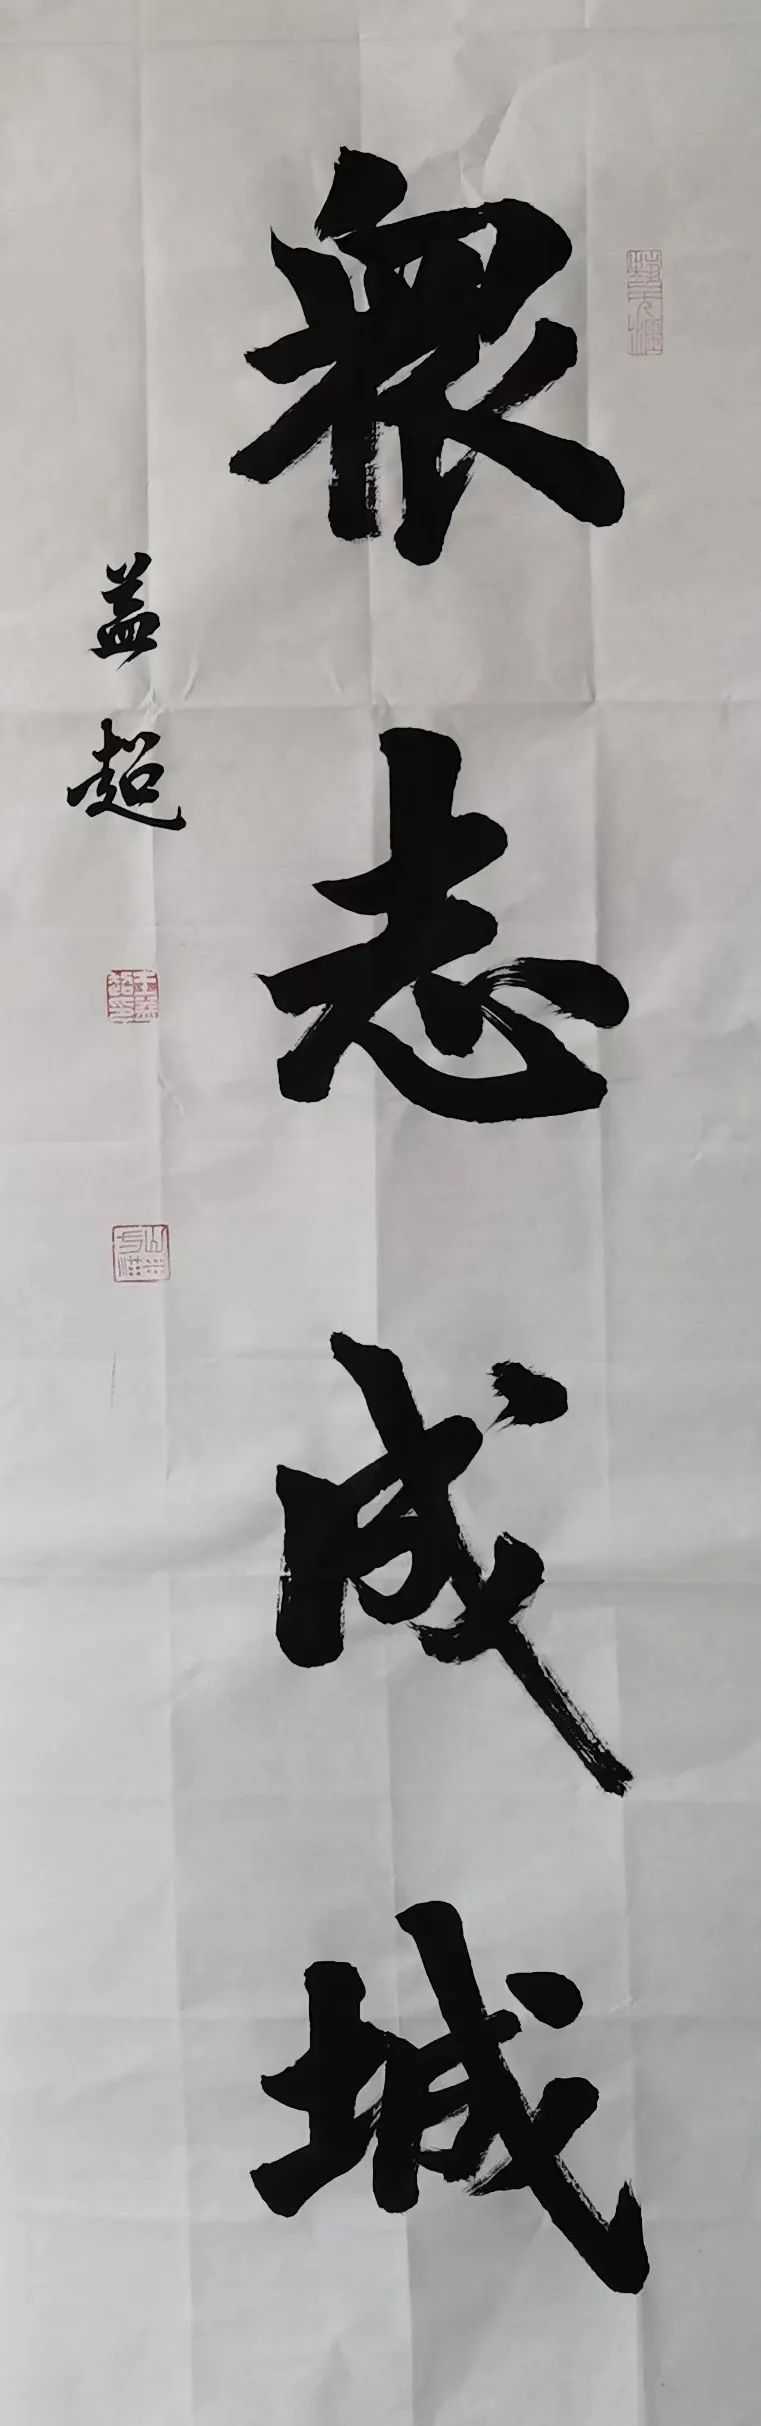 眾志成城
益超